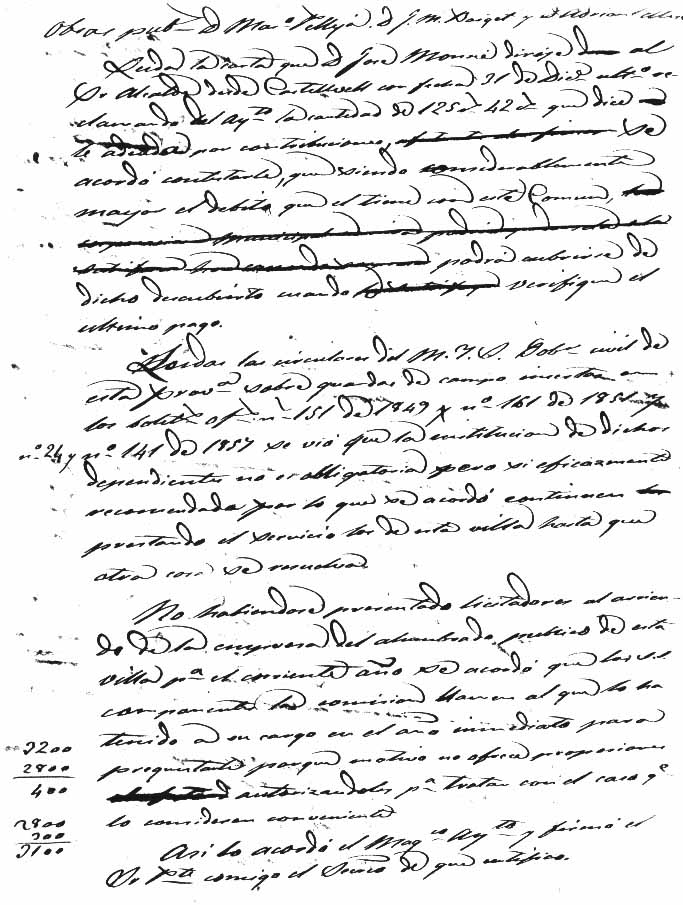 Obras pub.s D. Mar.o Tellyá. D. J. M. Puiget y D. Adrian
Leida la carta que D. José Monné dirije al
Sr Alcalde desde Castellvell con fecha 31 de Dic.e ult.o re-
clamando del Ay.to la cantidad de 125 42 que dice
le adeuda por contribuciones, se
acordó contestarle, que siendo considerablemente
mayor el debito que el tiene con este Comun,
podrá cubrirse de
dicho descubierto cuando verifique el
ultimo pago.
Leidas las circulares del M. Y. S. Gob.r civil de
esta prov.a sobre guardas de campo insertas en
los bolet.s of.s n.s 151 de 1849 y n.o 161 de 1851 y
n.o 24 y n.o 141 de 1857 se vió que la institucion de dichos
dependientes no es obligatoria pero si eficazmente
recomendada por lo que se acordó continuen
prestando el servicio los de esta villa hasta que
otra cosa se resuelva.
No habiendose presentado licitadores al arrien-
do de la empresa del alumbrado publico de esta
villa p.a el corriente año se acordó que los S.S.
componentes la comision llamen al que lo ha
tenido a su cargo en el año inmediato para
preguntarle porque motivo no ofrece proposiciones
autorizandoles p.a tratar con el caso q.e
lo consideren conveniente
Asi lo acordó el Mag.co Ay.to y firmó el
Sr P.te conmigo el Secret.o de que certifico.
3200
2800
400
2800
300
3100